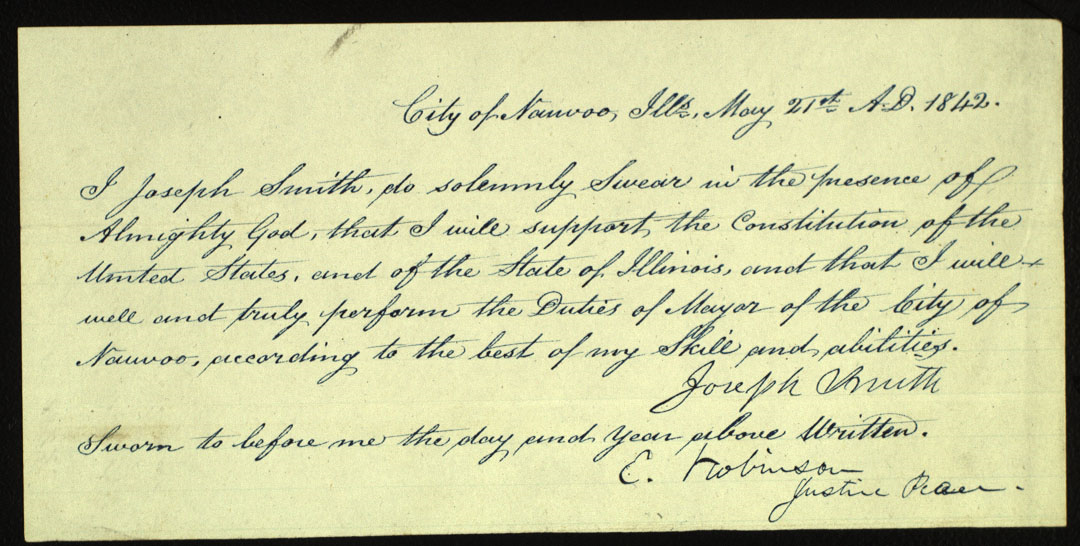 City of Nauvoo, Ills. May 21st A.D. 1842.
I Joseph Smith, do solemnly Swear in the presence of
Almighty God, that I will support the Constitution of the
United States, and of the State of Illinois, and that I will
well and truly perform the Duties of Mayor of the City of
Nauvoo, according to the best of my Skill and abilities.
Joseph Smith
Sworn to before me the day and year above Written.
E. Robinson
Justice Peace